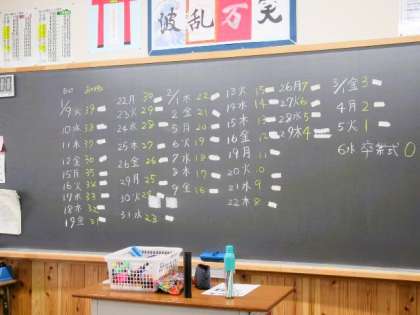 波乱万笑
1/9 火 39
10 水 38
11 木 37
12 金 36
15 月 35
16 火 34
17 水 33
18 木 32
19 金 31
22 月 30
23 火 29
24 水 28
25 木 27
26 金 26
29 月 25
30 火 24
31 水 23
2/1 木 22
2 金 21
5 月 20
6 火 19
7 水 18
8 木 17
9 金 16
13 火 15
14 水 14
15 木 13
16 金 12
19 月 11
20 火 10
21 水 9
22 木 8
26 月 7
27 火 6
28 水 5
29 木 4
3/1 金 3
4 月 2
5 火 1
6 水 卒業式 0